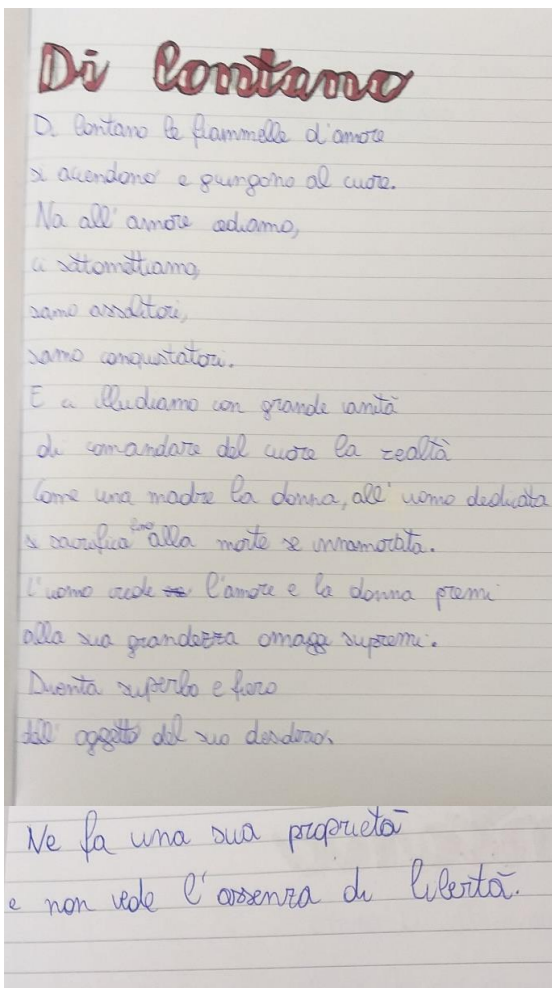 Di Lontano
Di lontano le fiammelle d'amore
si accendono e giungono al cuore.
Ma all'amore cediamo,
ci sottomettiamo,
siamo assalitori,
siamo conquistatori.
E ci illudiamo con grande vanità
di comandare del cuore la realtà
Come una madre la donna, all'uomo dedicata
si sacrifica fino alla morte se innamorata.
L'uomo crede l'amore e la donna premi
alla sua grandezza omaggi supremi.
Diventa superbo e fiero
dell'oggetto del suo desiderio.
Ne fa una sua proprietà
e non vede l'assenza di libertà.